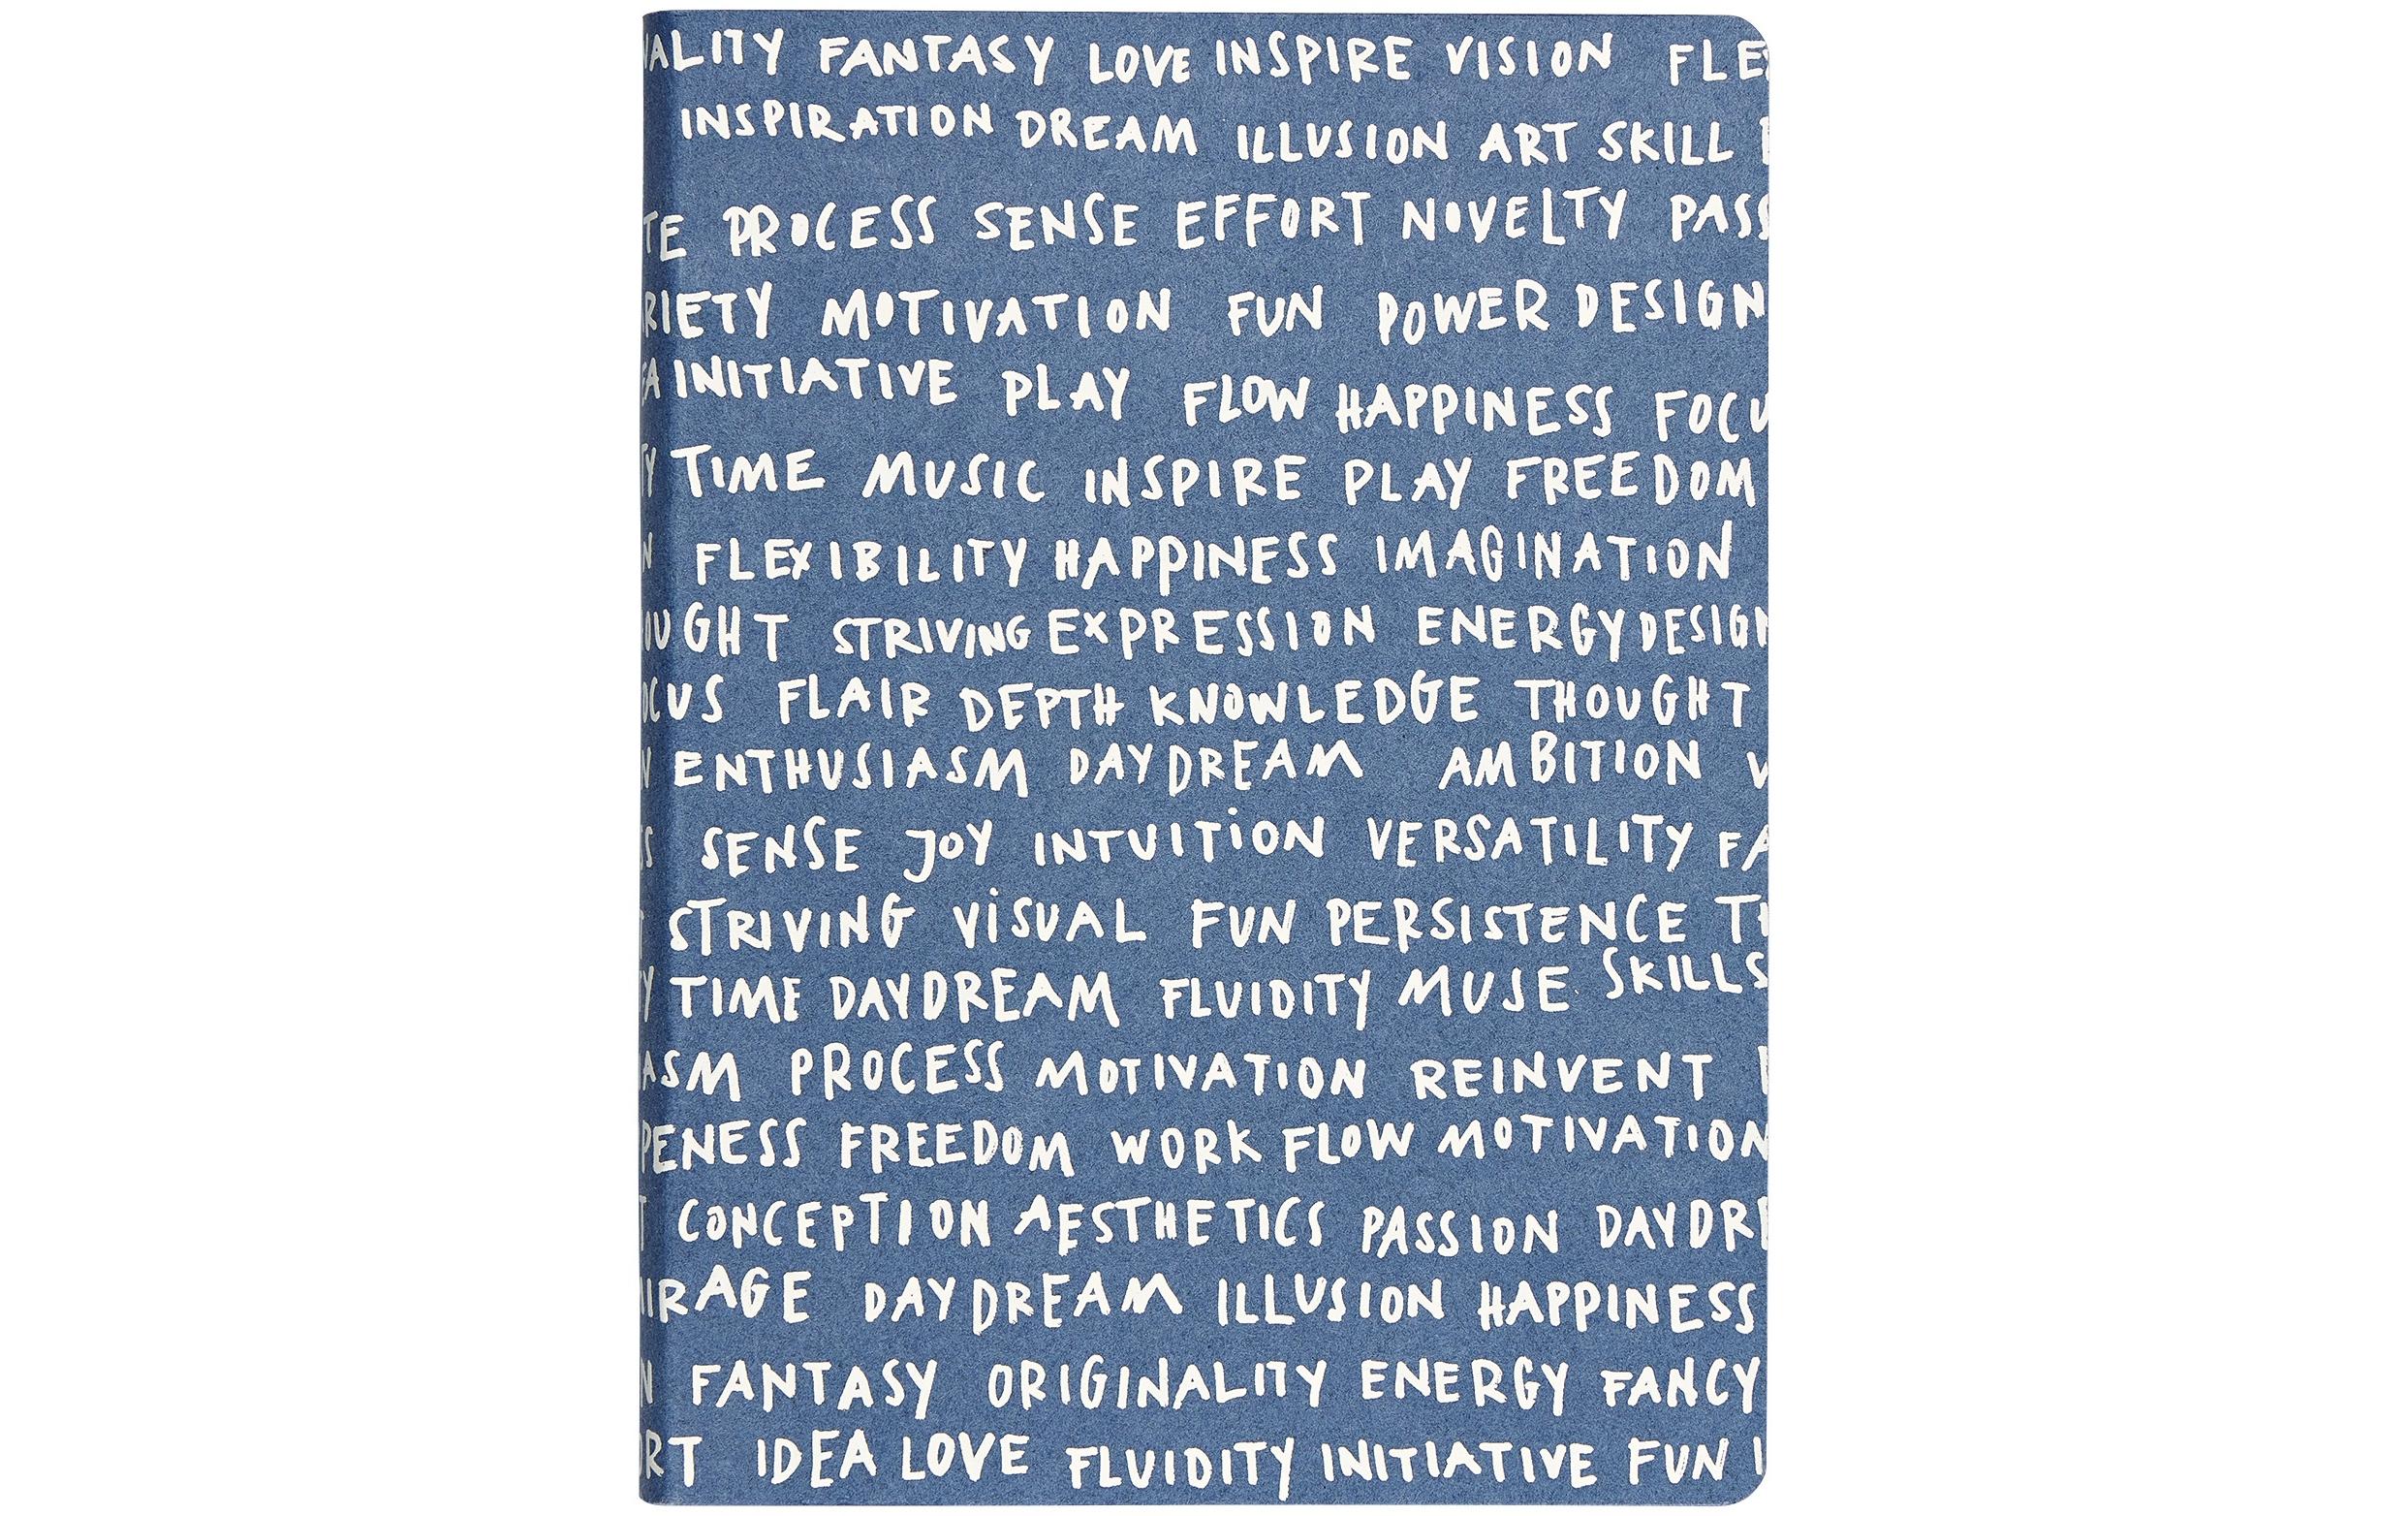 NALITY FANTASY LOVE INSPIRE VISION FLE
INSPIRATION DREAM ILLUSION ART SKILL
TE PROCESS SENSE EFFORT NOVELTY PASS
RIETY MOTIVATION FUN POWER DESIGN
EA INITIATIVE PLAY FLOW HAPPINESS FOCU
TY TIME MUSIC INSPIRE PLAY FREEDOM
N FLEXIBILITY HAPPINESS IMAGINATION
OUGHT STRIVING EXPRESSION ENERGY DESIGN
OCUS FLAIR DEPTH KNOWLEDGE THOUGHT
N ENTHUSIASM DAYDREAM AMBITION V
SS SENSE JOY INTUITION VERSATILITY FA
STRIVING VISUAL FUN PERSISTENCE TH
Y TIME DAYDREAM FLUIDITY MUSE SKILLS
IASM PROCESS MOTIVATION REINVENT
PENESS FREEDOM WORK FLOW MOTIVATION
T CONCEPTION AESTHETICS PASSION DAYDRE
MIRAGE DAYDREAM ILLUSION HAPPINESS
N FANTASY ORIGINALITY ENERGY FANCY
ORT IDEA LOVE FLUIDITY INITIATIVE FUN I